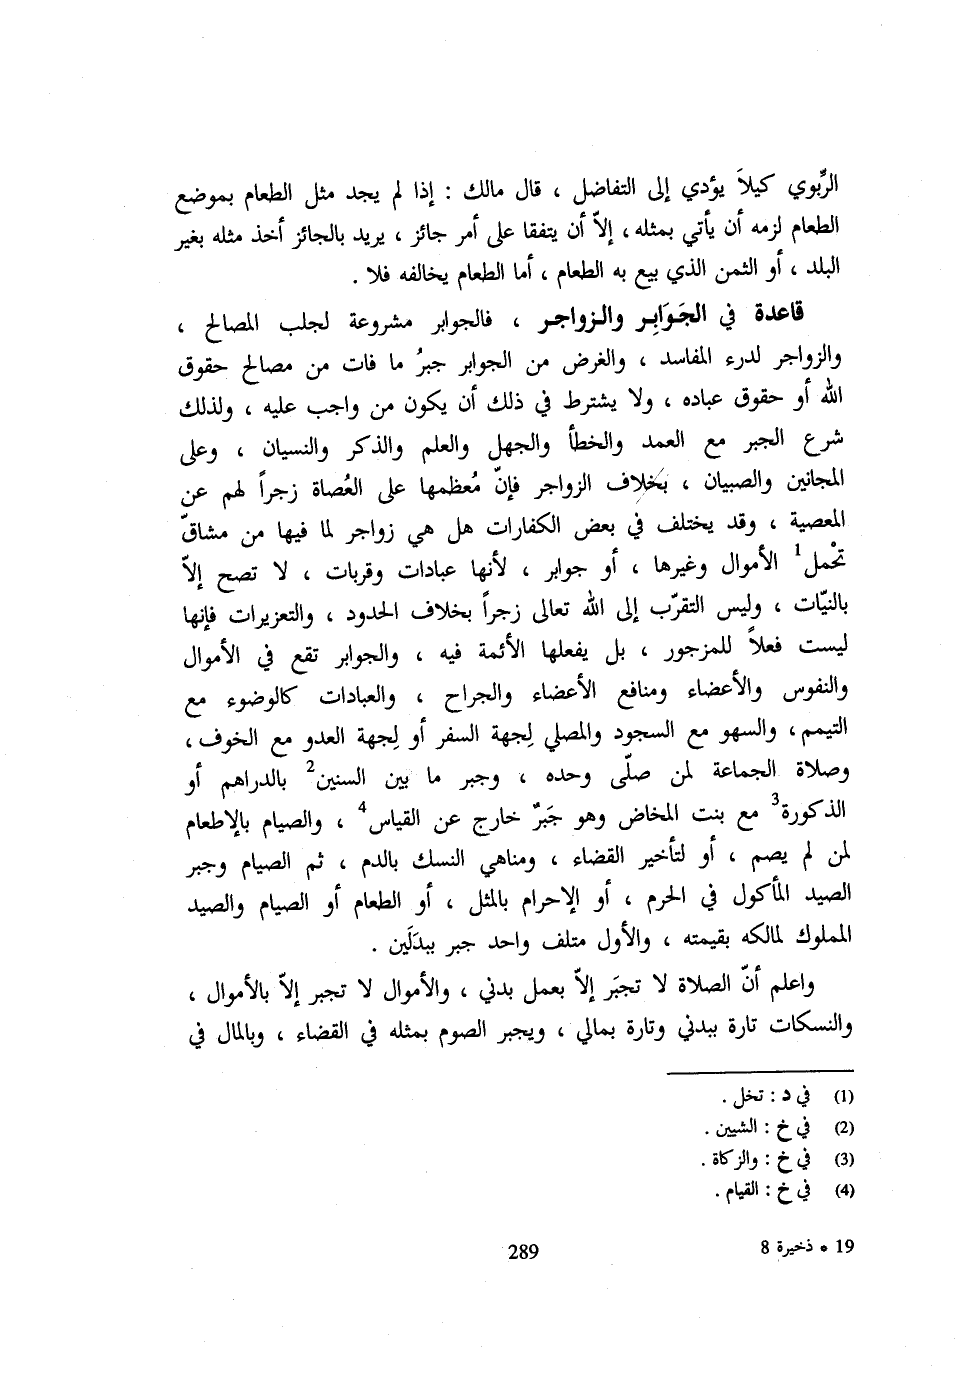 الرِّبوي كيلاً يؤدي إلى التفاضل ، قال مالك : إذا لم يجد مثل الطعام بموضع
الطعام لزمه أن يأتي بمثله ، إلاّ أن يتفقا على أمر جائز ، يريد بالجائز أخذ مثله بغير
البلد ، أو الثمن الذي بيع به الطعام ، أما الطعام يخالفه فلا .
قاعدة في الجَوَابِر والزواجر ، فالجوابر مشروعة لجلب المصالح ،
والزواجر لدرء المفاسد ، والغرض من الجوابر جبرُ ما فات من مصالح حقوق
الله أو حقوق عباده ، ولا يشترط في ذلك أن يكون من واجب عليه ، ولذلك
شرع الجبر مع العمد والخطأ والجهل والعلم والذكر والنسيان ، وعلى
المجانين والصبيان ، بخلاف الزواجر فإنّ مُعظمها على العُصاة زجراً لهم عن
المعصية ، وقد يختلف في بعض الكفارات هل هي زواجر لما فيها من مشاقّ
تحْمل1 الأموال وغيرها ، أو جوابر ، لأنها عبادات وقربات ، لا تصح إلاّ
بالنيّات ، وليس التقرّب إلى الله تعالى زجراً بخلاف الحدود ، والتعزيرات فإنها
ليست فعلاً للمزجور ، بل يفعلها الأئمة فيه ، والجوابر تقع في الأموال
والنفوس والأعضاء ومنافع الأعضاء والجراح ، والعبادات كالوضوء مع
التيمم ، والسهو مع السجود والمصلي لِجهة السفر أو لِجهة العدو مع الخوف ،
وصلاة الجماعة لمن صلّى وحده ، وجبر ما بين السنين2 بالدراهم أو
الذكورة3 مع بنت المخاض وهو جَبَرٌ خارج عن القياس4 ، والصيام بالإطعام
لمن لم يصم ، أو لتأخير القضاء ، ومناهي النسك بالدم ، ثم الصيام وجبر
الصيد المأكول في الحرم ، أو الإحرام بالمثل ، أو الطعام أو الصيام والصيد
المملوك لمالكه بقيمته ، والأول متلف واحد جبر ببدَلَين .
واعلم أنّ الصلاة لا تجبَر إلاّ بعمل بدني ، والأموال لا تجبر إلاّ بالأموال ،
والنسكات تارة ببدني وتارة بمالي ، ويجبر الصوم بمثله في القضاء ، وبالمال في
(1) في د : تخل .
(2) في خ : الشيين .
(3) في خ : والزكاة .
(4) في خ : القيام .
19 * ذخيرة 8
289